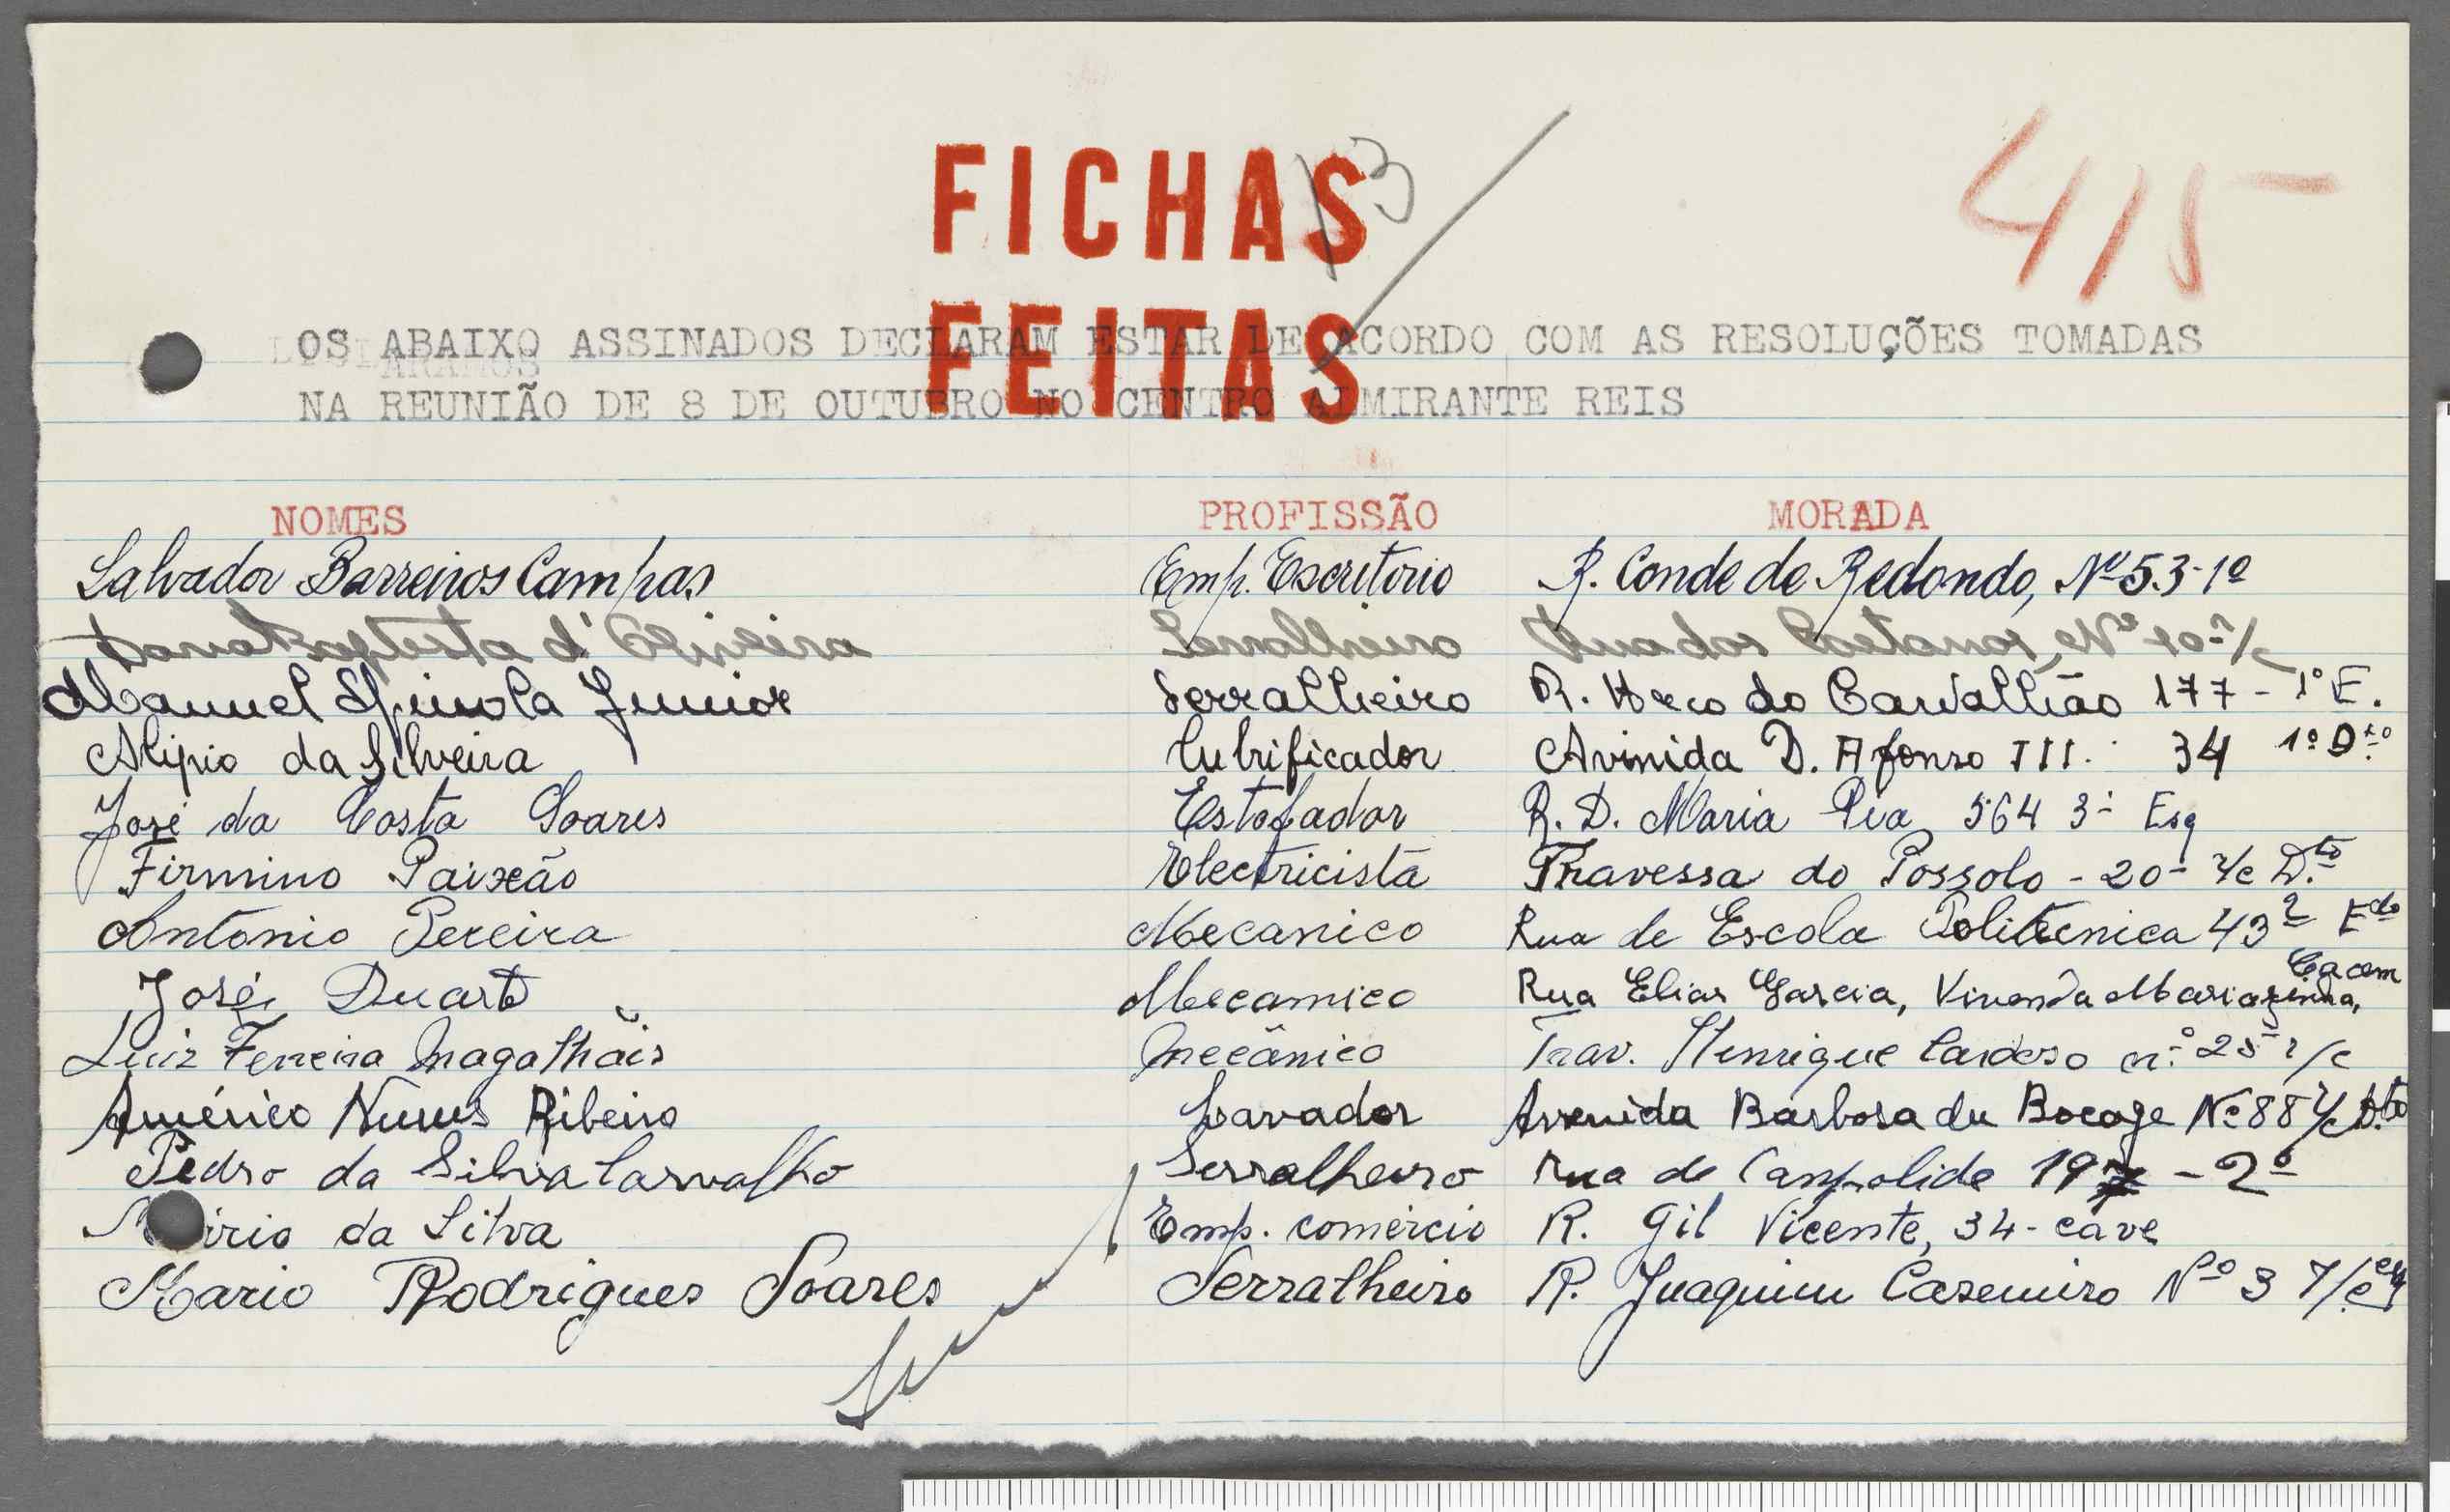 415
13
FICHAS
FEITAS
OS ABAIXO ASSINADOS DECLARAM ESTAR DE ACORDO COM AS RESOLUÇÕES TOMADAS
NA REUNIÃO DE 8 DE OUTUBRO NO CENTRO ALMIRANTE REIS
NOMES PROFISSÃO MORADA
Salvador Barreiros Campas Emp. Escritorio R. Conde de Redondo, Nº 53-1º
Baptista d'Oliveira Serralheiro Rua dos Caetanos, Nº 10-r/c
Manuel Spinola Junior Serralheiro R. Arco do Carvalhão 177-1º E.
Alipio da Silveira Lubrificador Avinida D. Afonso III. 34 1º Dto
José da Costa Soares Estofador R. D. Maria Pia 564 3º Esq
Firmino Paixão Electricista Travessa do Possolo - 20 - r/c Dto
Antonio Pereira Mecanico Rua de Escola Politecnica 43 2º Edo
José Duarte Mecanico Rua Elias Garcia, Vivenda Mariazinha, Cacem
Luiz Ferreira Magalhãis Mecânico Trav. Henrique Cardoso n.º 25 r/c
Américo Nunes Ribeiro Lavador Avenida Barbosa du Bocage Nº 88 r/c Dto
Pedro da Silva Carvalho Serralheiro Rua de Campolide - 2º
Mário da Silva Emp. comércio R. Gil Vicente, 34-cave
Mario Rodrigues Soares Serralheiro R. Juaquim Casemiro Nº 3 r/c